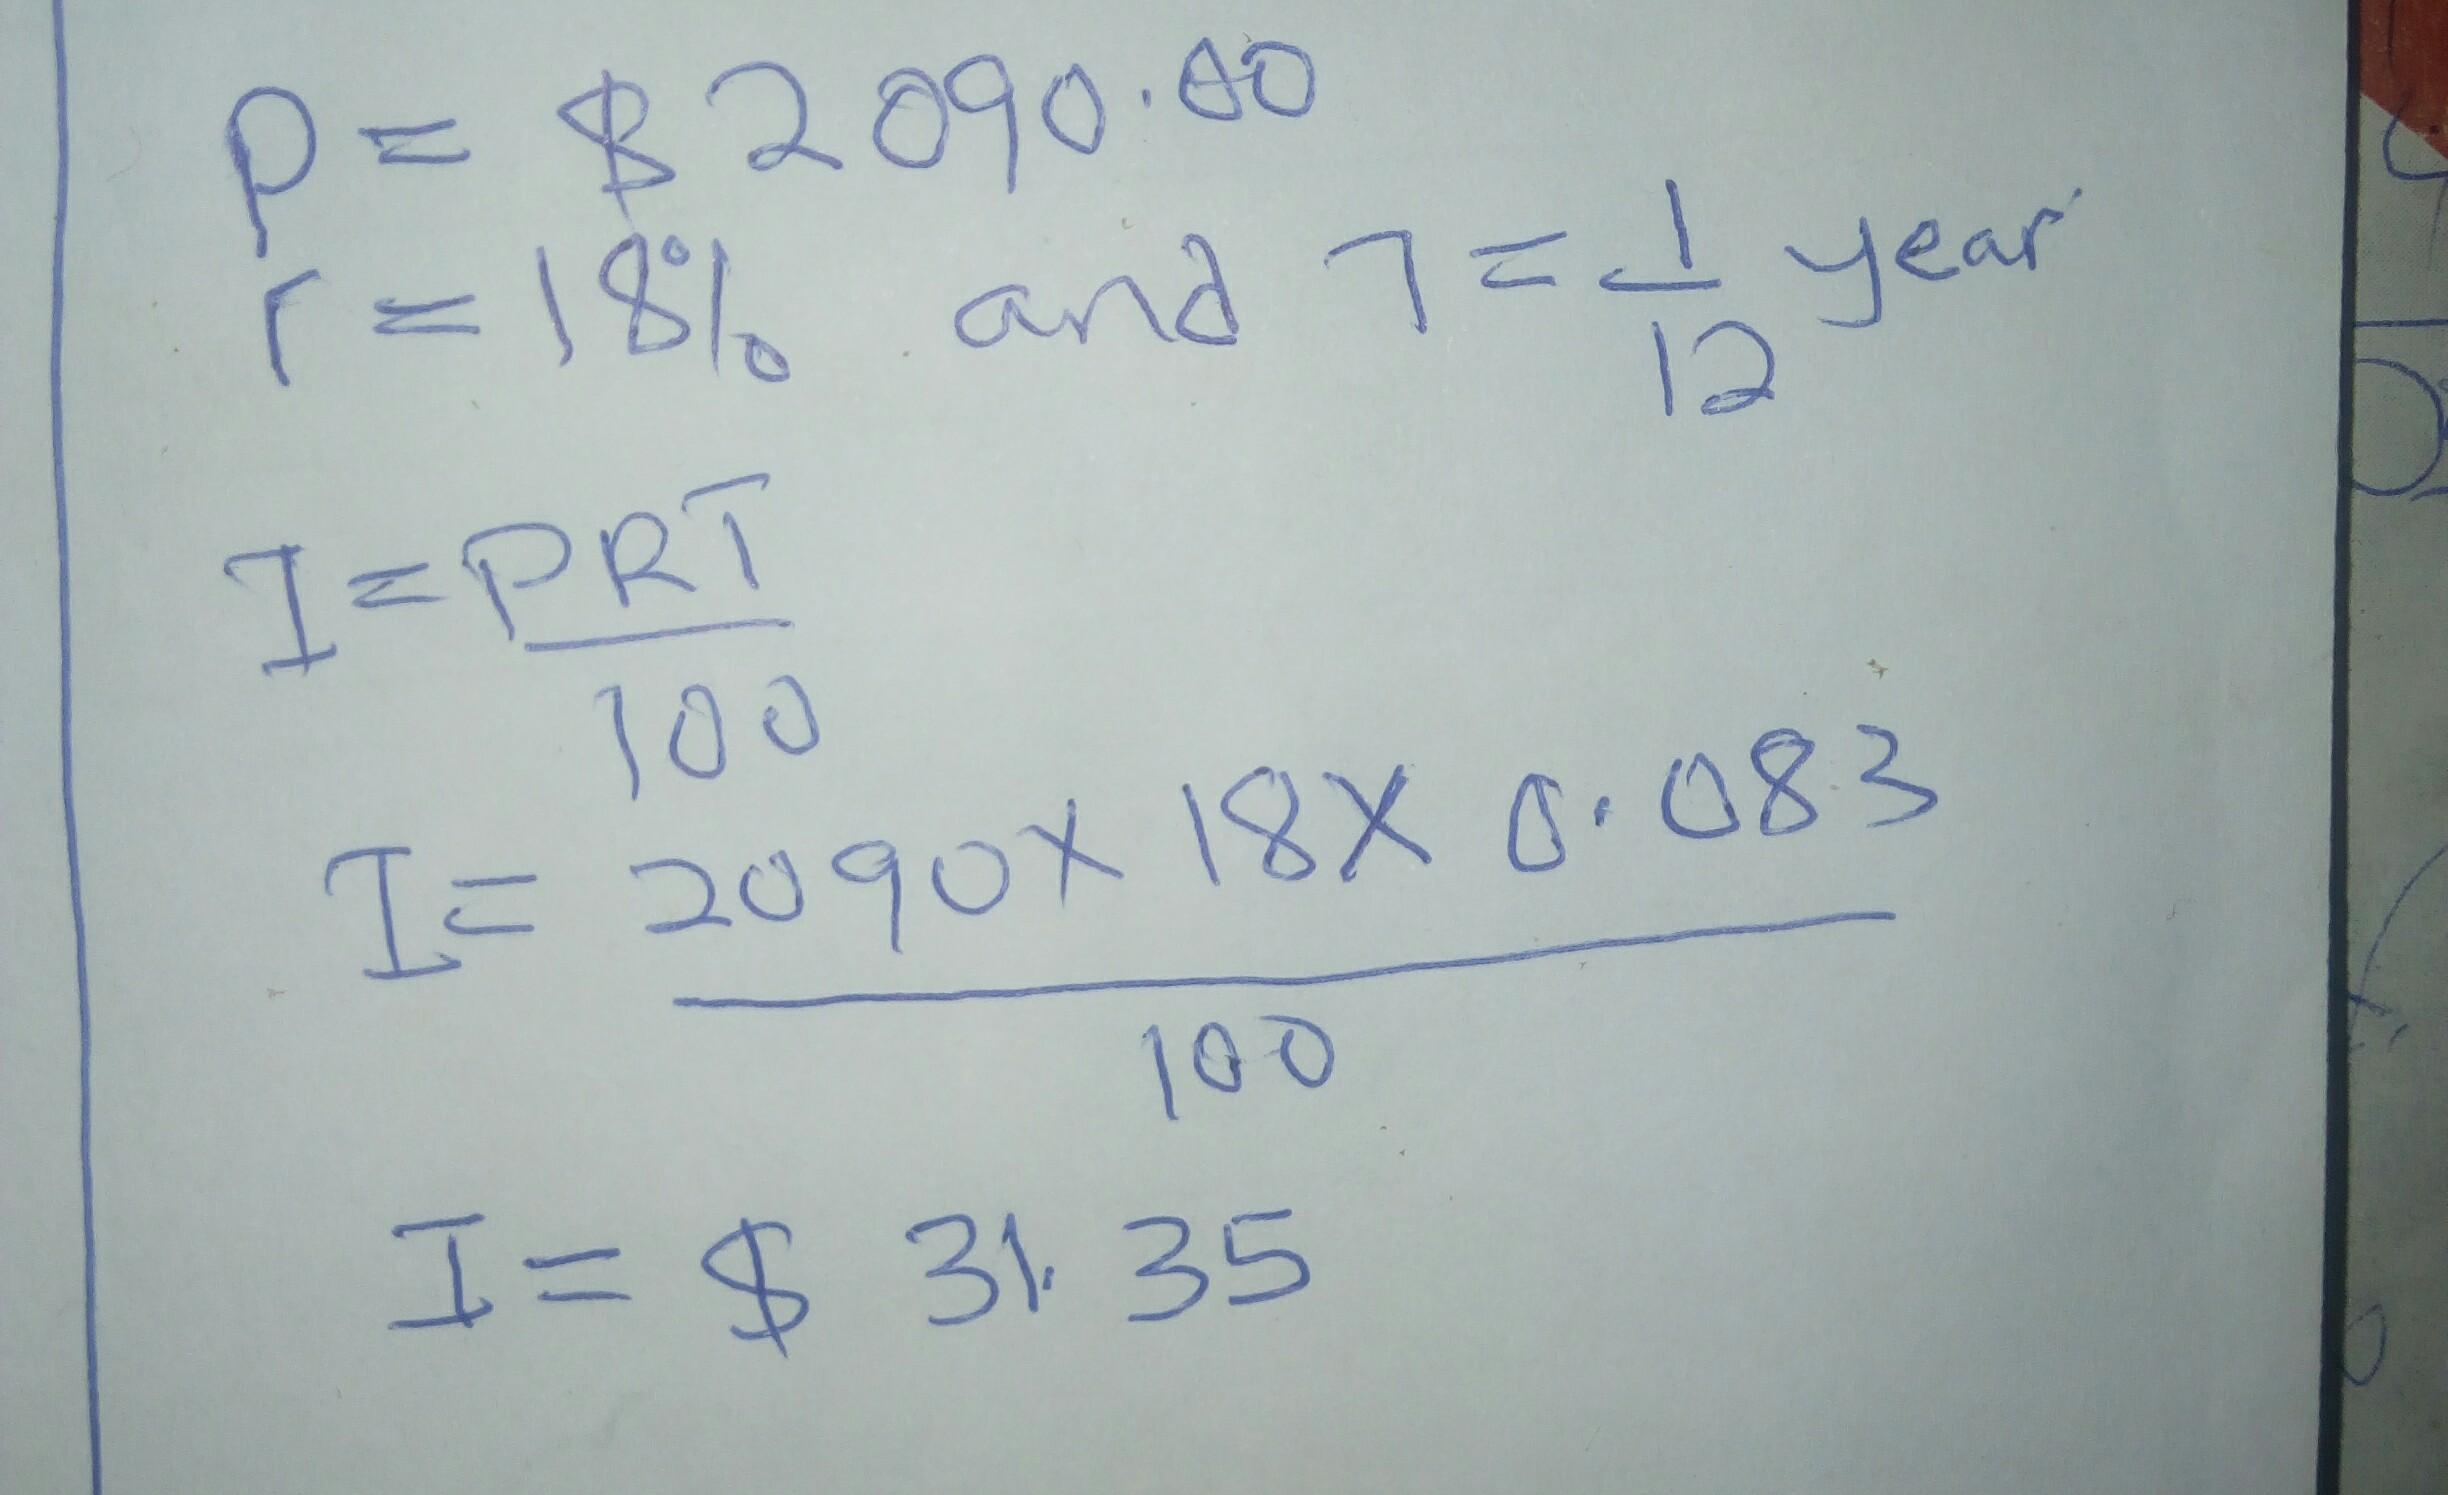 P = $ 2090.00
r = 18% and T = 1/12 year
I = PRT/100
I = 2090 X 18 X 0.083
100
I = $ 31.35